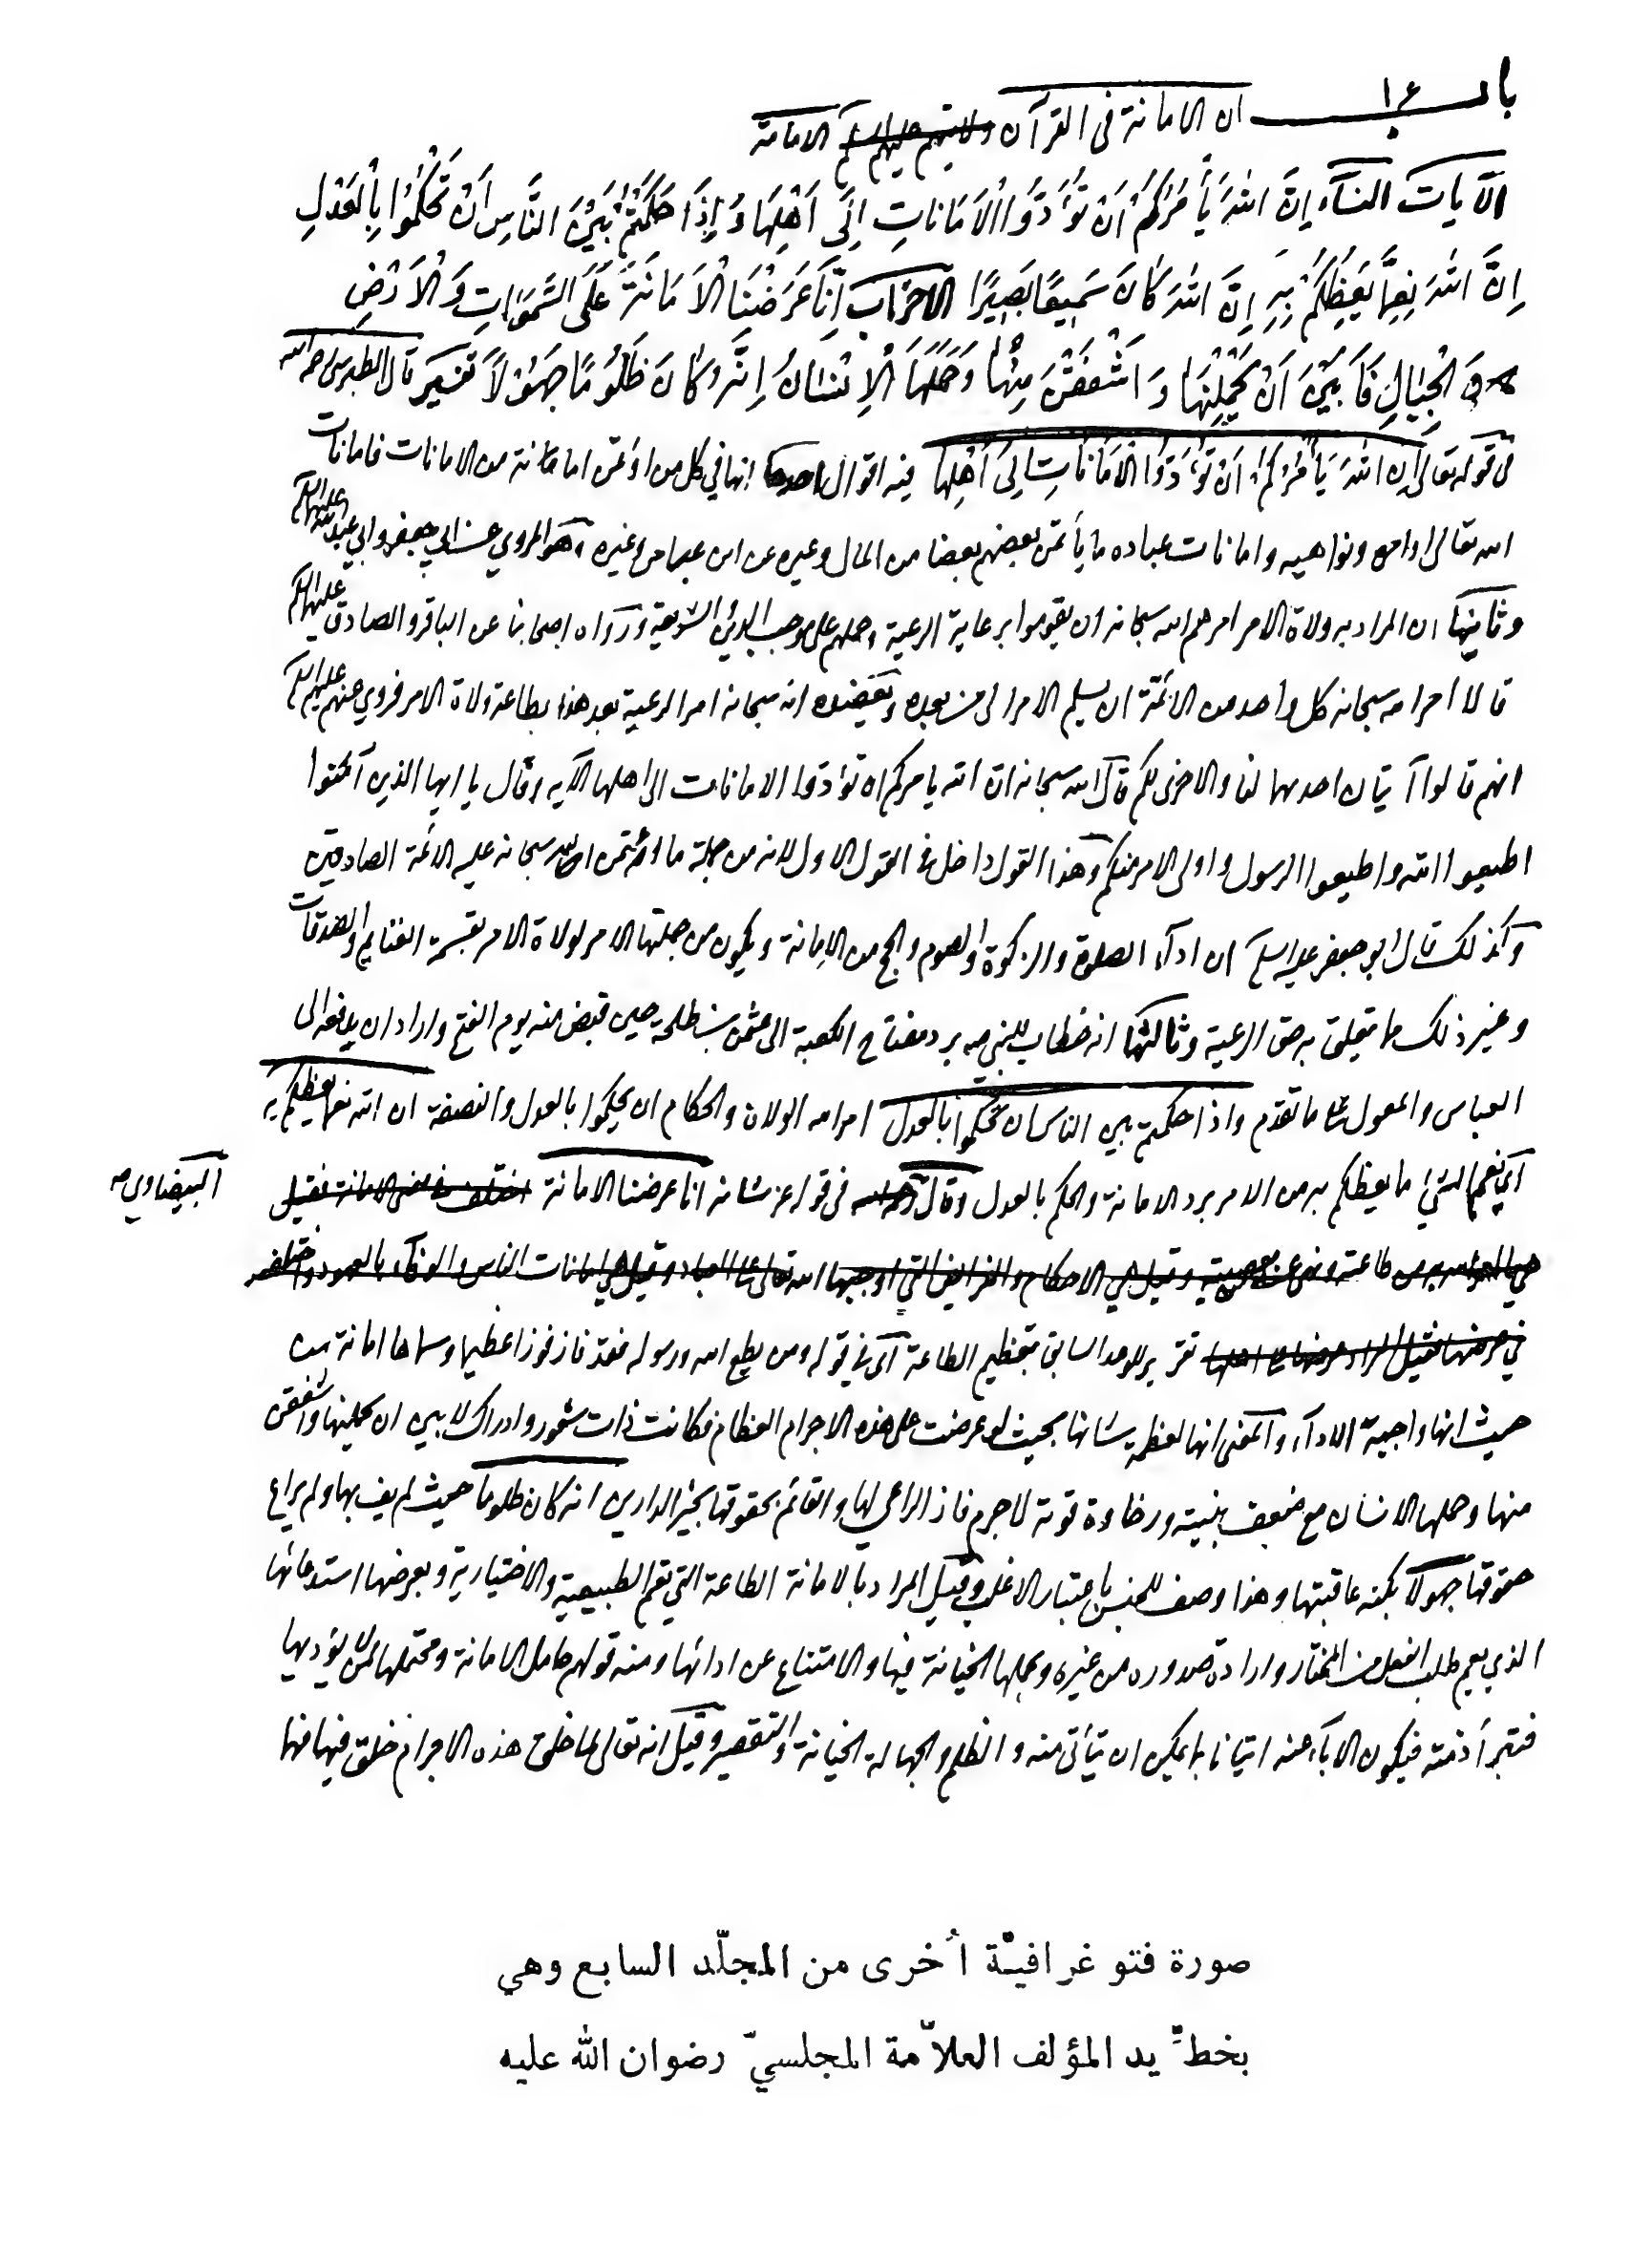 باب ١٦ ان الامانة فى القرآن الامامة
الآيات النسآء إِنَّ اللهَ يَأْمُرُكُمْ أَنْ تُؤَدُّوا الْأَمَانَاتِ إِلَى أَهْلِهَا وَإِذَا حَكَمْتُمْ بَيْنَ النَّاسِ أَنْ تَحْكُمُوا بِالْعَدْلِ
إِنَّ اللهَ نِعِمَّا يَعِظُكُمْ بِهِ إِنَّ اللهَ كَانَ سَمِيعًا بَصِيرًا الاحزاب إِنَّا عَرَضْنَا الْأَمَانَةَ عَلَى السَّمَوَاتِ وَالْأَرْضِ
وَ الْجِبَالِ فَأَبَيْنَ أَنْ يَحْمِلْنَهَا وَ أَشْفَقْنَ مِنْهَا وَحَمَلَهَا الْإِنْسَانُ إِنَّهُ كَانَ ظَلُومًا جَهُولاً تفسير قال الطبرسى رحمه الله
فى قوله تعالى إِنَّ اللهَ يَأْمُرُكُمْ أَنْ تُؤَدُّوا الْأَمَانَاتِ إِلَى أَهْلِهَا فيه اقوال احدها انها في كل من اؤتمن امانة من الامانات فامانات
الله تعالى اوامره ونواهيه وامانات عباده ما يأتمن بعضهم بعضا من المال وغيره عن ابن عباس وغيره وهو المروي عن ابي جعفر وابي عبدالله عليهما السلام
وثانيها ان المراد به ولاة الامر امرهم الله سبحانه ان يقوموا برعاية الرعية وحملهم على موجب الدين والشريعة ورواه اصحابنا عن الباقر والصادق عليهما السلام
قالا امر الله سبحانه كل واحد من الائمّة ان يسلم الامر الى من بعده ويعضده انه سبحانه امر الرعية بعد هذا بطاعة ولاة الامر فروي عنهم عليهم السلام
انهم قالوا آيتان احديهما لنا والاخرى لكم قال الله سبحانه ان الله يامركم ان تؤدوا الامانات الى اهلها الآية وقال يا ايها الذين آمنوا
اطيعوا الله واطيعوا الرسول واولى الامر منكم وهذا القول داخل في القول الاول لانه من جملة ما ائتمن الله سبحانه عليه الائمة الصادقين
وكذلك قال ابو جعفر عليه السلم ان اداء الصلوة والزكوة والصوم والحج من الامانة ويكون من جملتها الامر لولاة الامر بقسمة الغنايم والصدقات
وغير ذلك مما يتعلق به حق الرعية وثالثها انه خطاب للنبي ص برد مفتاح الكعبة الى عثمن بن طلحة حين قبض منه يوم الفتح واراد ان يدفعه الى
العباس والمعول على ما تقدم واذا حكمتم بين الناس ان تحكموا بالعدل امر الله الولاة والحكام ان يحكموا بالعدل والنصفة ان الله نعما يعظكم به
اي نعم الشئ ما يعظكم به من الامر برد الامانة والحكم بالعدل وقال البيضاوي ره فى قوله عز شانه انا عرضنا الامانة اختلف في معنى الامانة فقيل
هي ما امر الله به من طاعته ونهى عنه من معصيته وقيل هي الاحكام والفرائض التي اوجبها الله تعالى على العباد وقيل هي امانات الناس والوفاء بالعهود واختلف
في عرضها فقيل المراد عرضها على اهلها تقرير للوعد السابق بتعظيم الطاعة اى في قوله ومن يطع الله ورسوله فقد فاز فوزا عظيما وسماها امانة من
حيث انها واجبة الاداء والمعنى انها لعظمة شانها بحيث لو عرضت على هذه الاجرام العظام فكانت ذات شعور وادراك لابين ان يحملنها واشفقن
منها وحملها الانسان مع ضعف بنيته ورخاوة قوته لا جرم فاز الراعي لها والقائم بحقوقها بخير الدارين انه كان ظلوما حيث لم يف بها ولم يراع
حقوقها جهولا بكنه عاقبتها وهذا وصف للجنس باعتبار الاغلب وقيل المراد بالامانة الطاعة التي تعم الطبيعية والاختيارية وبعرضها استدعائها
الذي يعم طلب الفعل من المختار وارادة صدوره من غيره وبحملها الخيانة فيها والامتناع عن ادائها ومنه قولهم حامل الامانة ومحتملها لمن لا يؤديها
فتبرأ ذمته فيكون الاباء عنه اتيانا بما يمكن ان يتأتى منه والظلم والجهالة الخيانة والتقصير وقيل انه تعالى لما خلق هذه الاجرام خلق فيها فهما
صورة فتوغرافيّة أُخرى من المجلّد السابع وهي
بخطِّ يد المؤلف العلاّمة المجلسيّ رضوان الله عليه